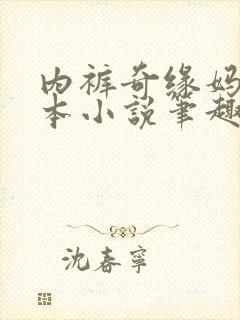 内裤奇缘妈
本小说笔趣
沈春宁